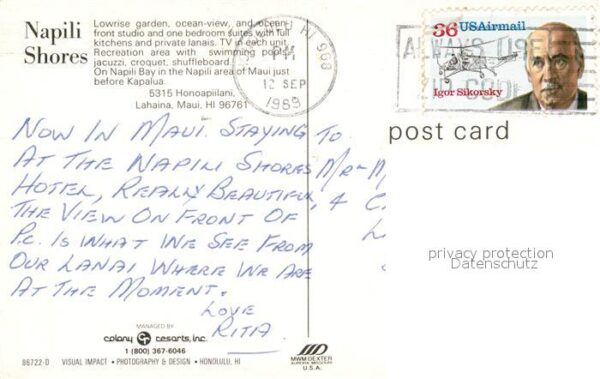 Napili
Shores
Lowrise garden, ocean-view, and ocean-
front studio and one bedroom suites with full
kitchens and private lanais. TV in each unit.
Recreation area with swimming pools,
jacuzzi, croquet, shuffleboard.
On Napili Bay in the Napili area of Maui just
before Kapalua.
5315 Honoapiilani,
Lahaina, Maui, HI 96761
HI 968
PM
12 SEP
1989
36 USAirmail
Igor Sikorsky
ALWAYS USE
post card
NOW IN MAUI. STAYING
AT THE NAPILI SHORES
HOTEL, REALLY BEAUTIFUL,
THE VIEW ON FRONT OF
P.C. IS WHAT WE SEE FROM
OUR LANAI WHERE WE ARE
AT THE MOMENT.
LOVE
RITA
TO.
MR - M
4 C
L
privacy protection
Datenschutz
MANAGED BY
colony resorts, inc.
1 (800) 367-6046
86722-D VISUAL IMPACT • PHOTOGRAPHY & DESIGN • HONOLULU, HI
MWM DEXTER
AURORA, MISSOURI
U.S.A.